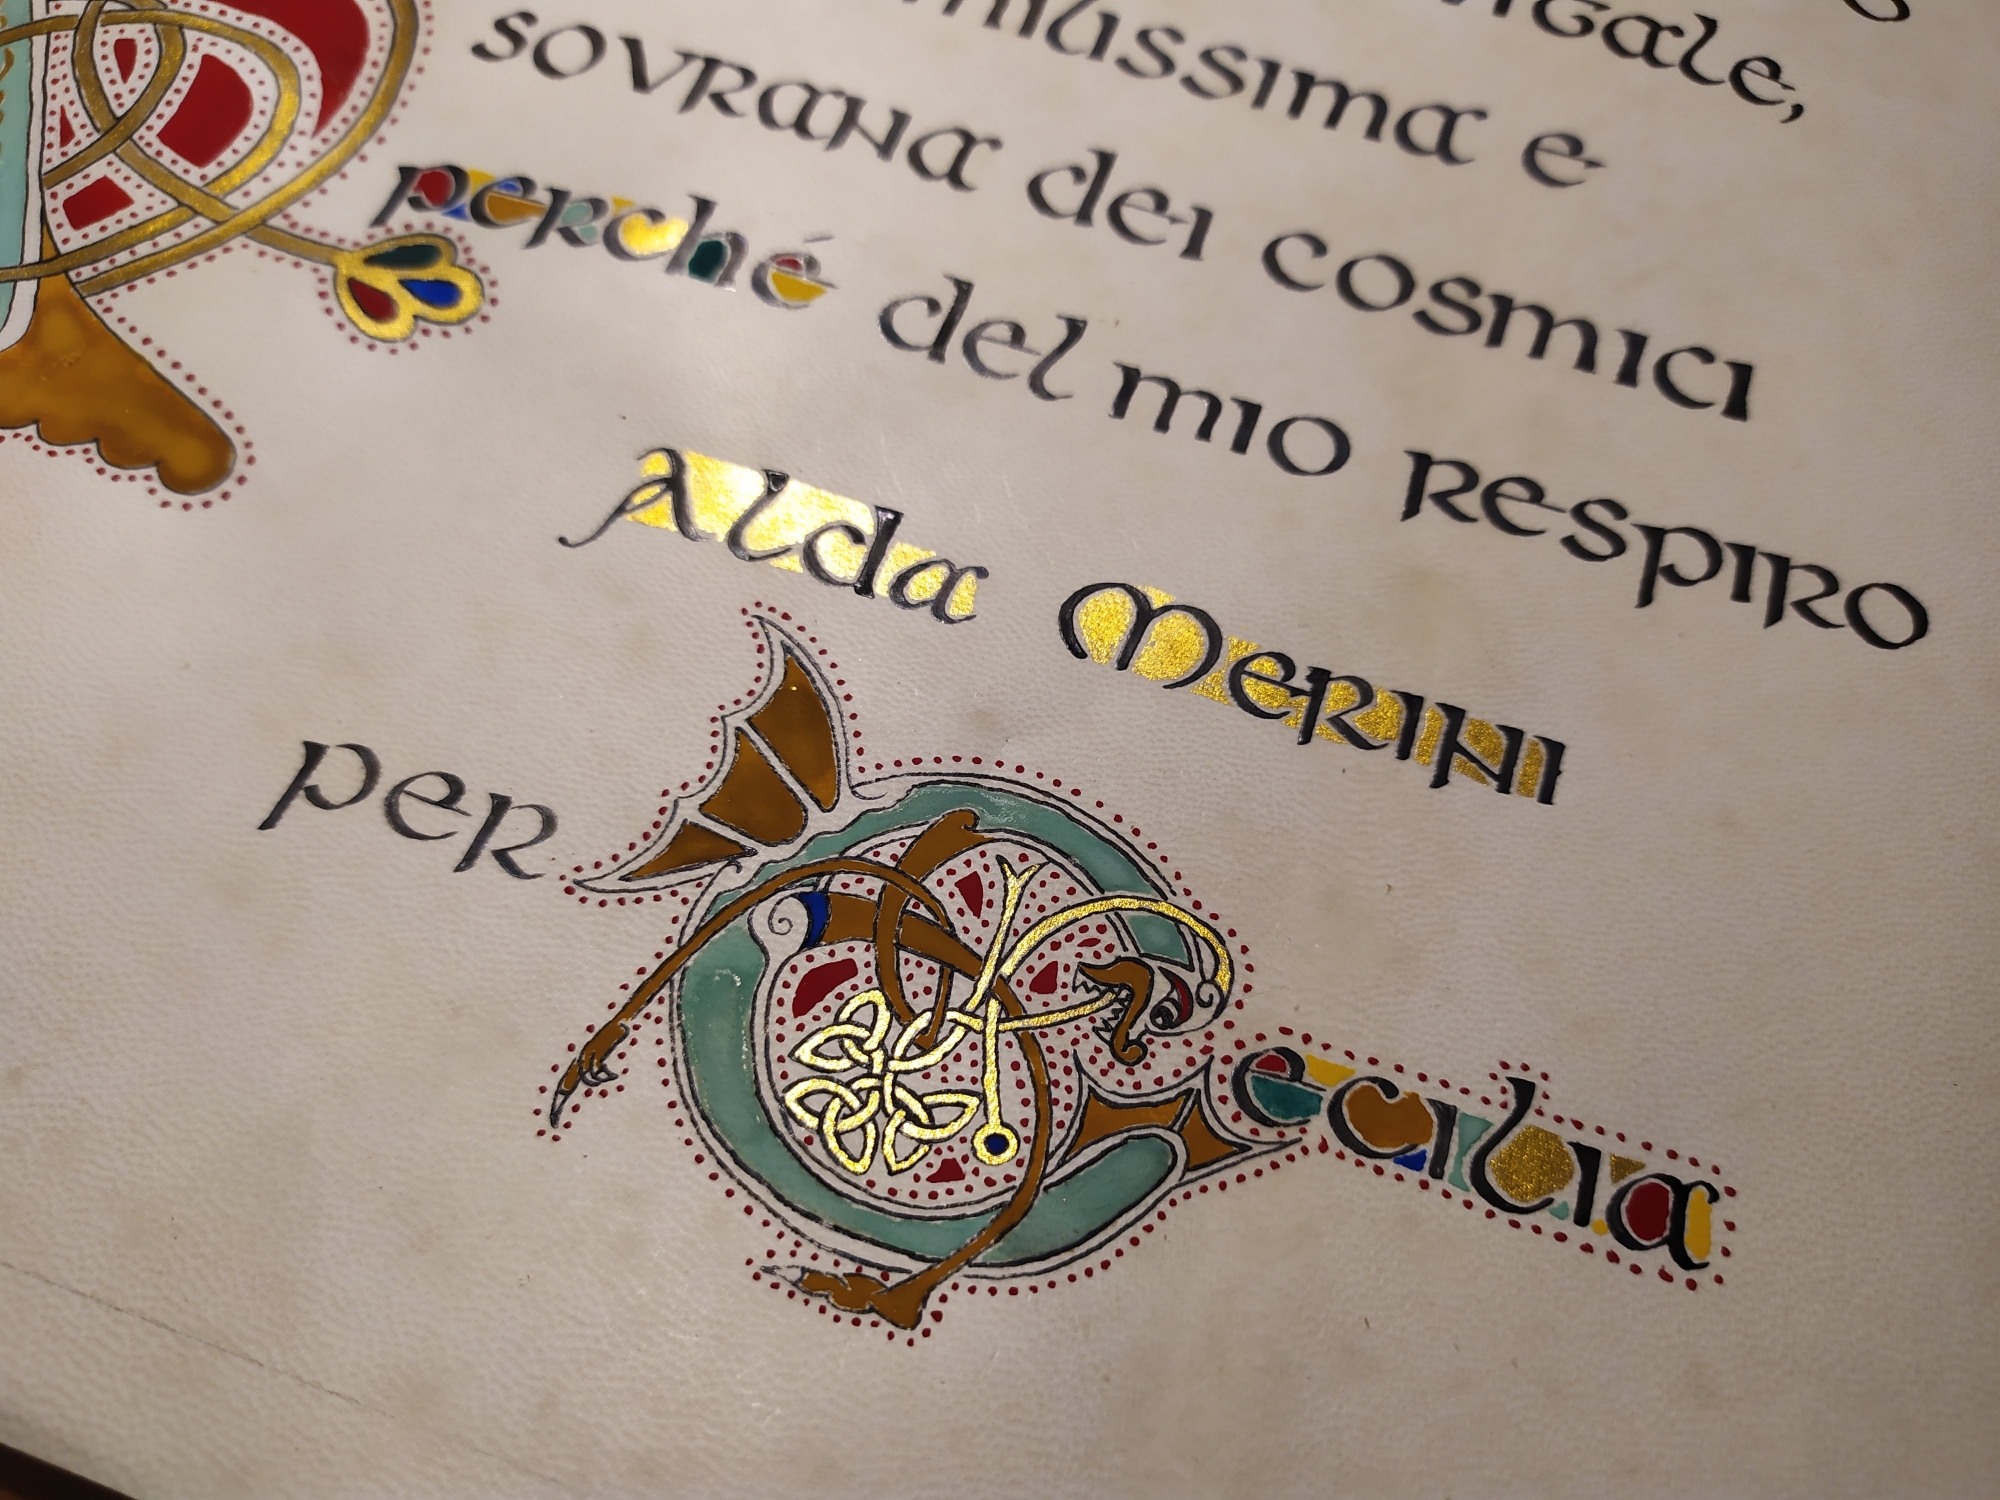 sovrana dei cosmici
perché del mio respiro
Alda Merini
per Cecilia